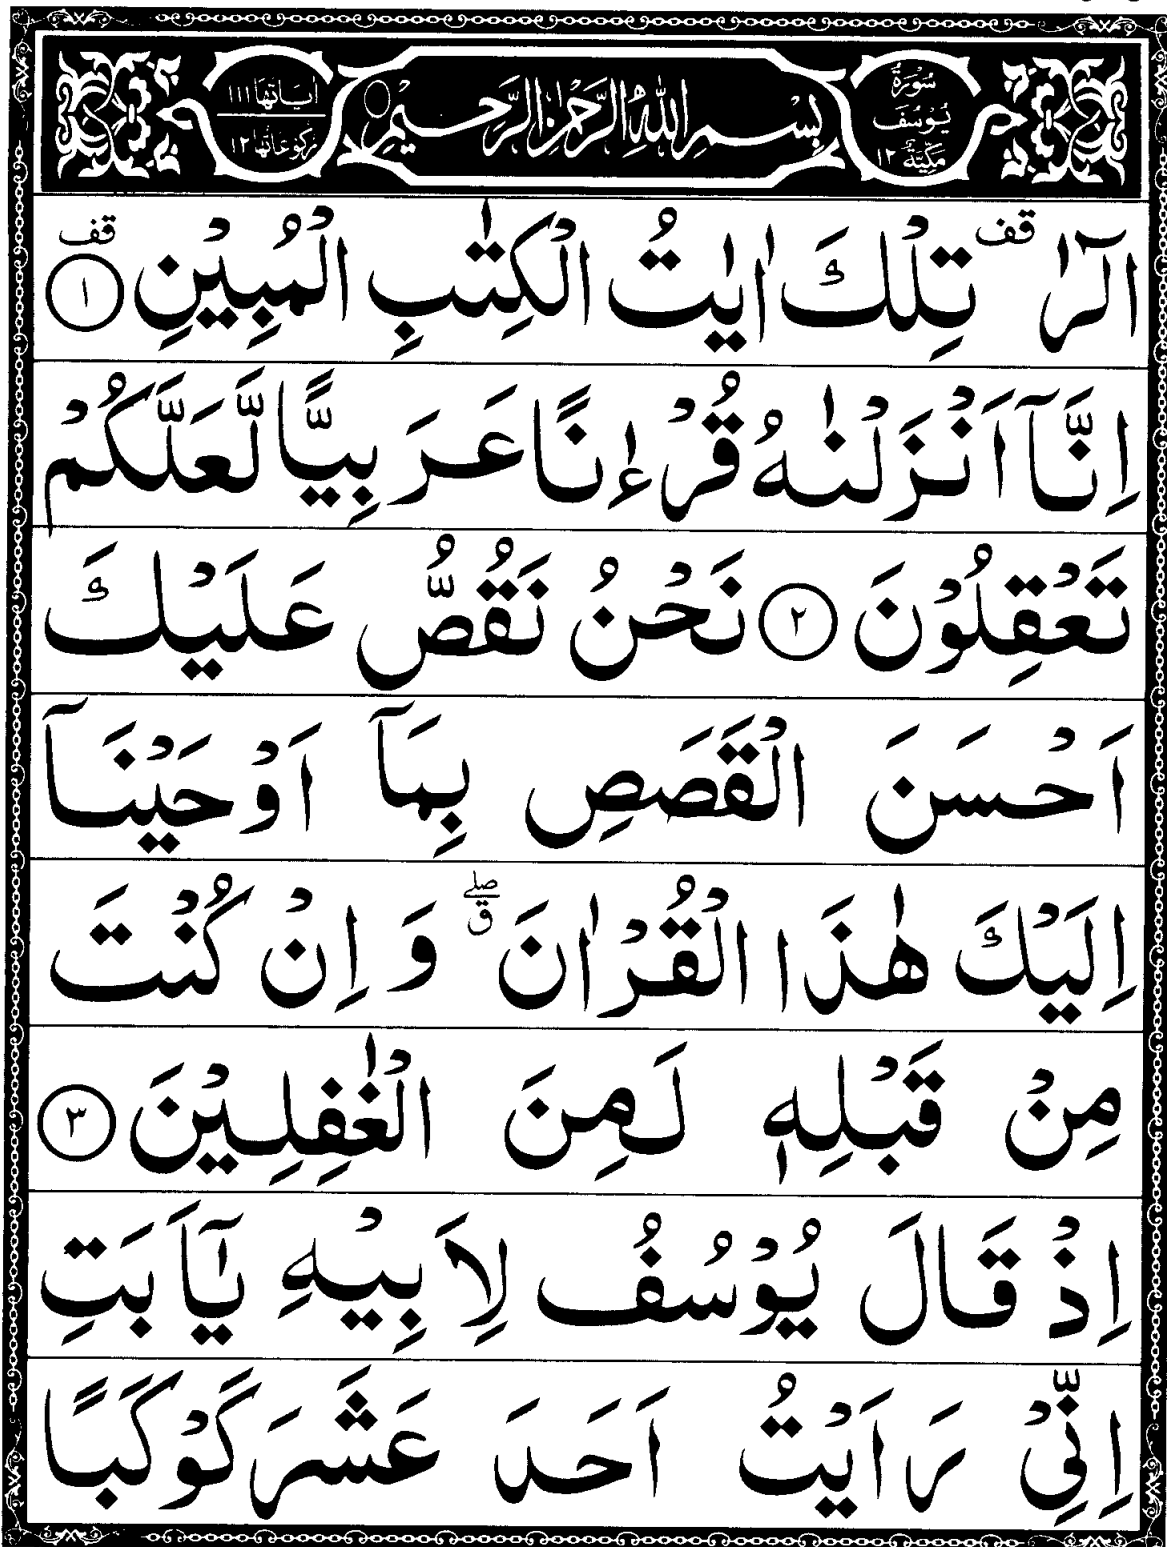 سُوْرَةُ
يُوْسُفَ
مَكِّيَّةٌ ١٢
بِسْمِ اللّٰهِ الرَّحْمٰنِ الرَّحِيْمِ
اٰيَاتُهَا ١١١
رُكُوْعَاتُهَا ١٢
الٓرٰ قف تِلْكَ اٰيٰتُ الْكِتٰبِ الْمُبِيْنِ ١ قف
اِنَّآ اَنْزَلْنٰهُ قُرْءٰنًا عَرَبِيًّا لَّعَلَّكُمْ
تَعْقِلُوْنَ ٢ نَحْنُ نَقُصُّ عَلَيْكَ
اَحْسَنَ الْقَصَصِ بِمَآ اَوْحَيْنَآ
اِلَيْكَ هٰذَا الْقُرْاٰنَ صلے ق وَ اِنْ كُنْتَ
مِنْ قَبْلِهٖ لَمِنَ الْغٰفِلِيْنَ ٣
اِذْ قَالَ يُوْسُفُ لِاَبِيْهِ يٰٓاَبَتِ
اِنِّيْ رَاَيْتُ اَحَدَ عَشَرَ كَوْكَبًا